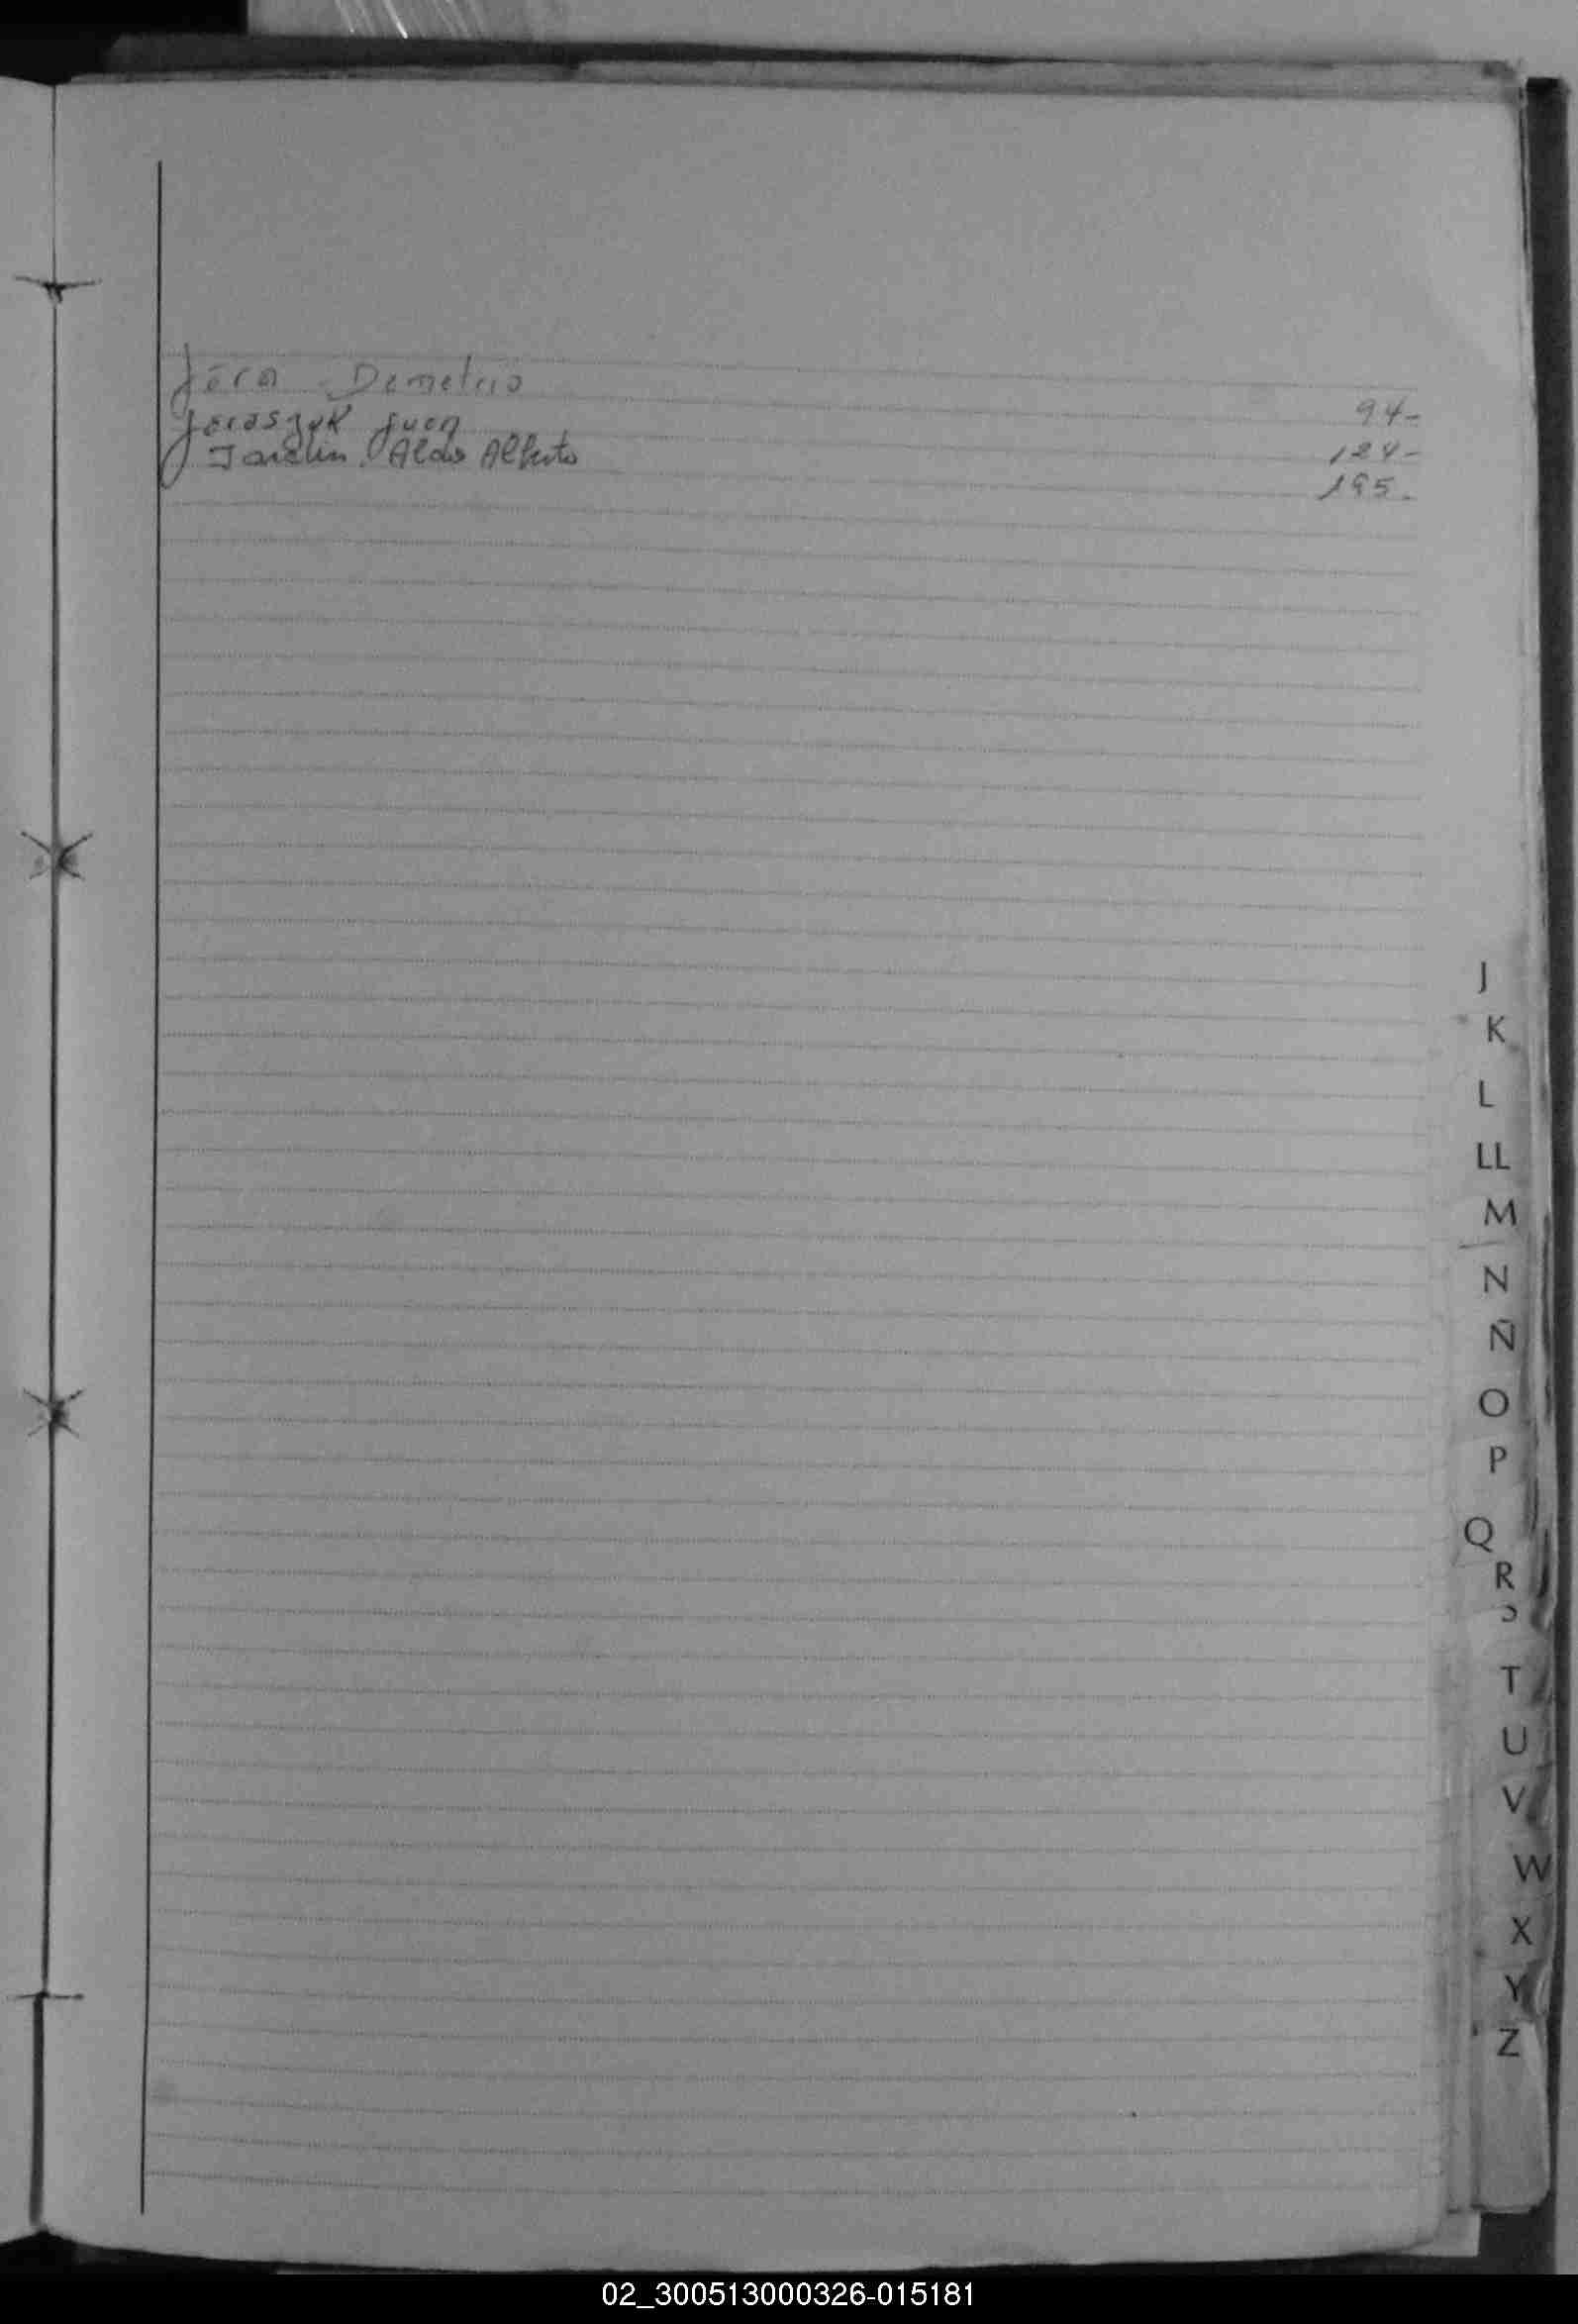 Jera Demetrio 94-
Jeraszuk Juan 124-
Jarelin Aldo Alberto 195.
J
K
L
LL
M
N
Ñ
O
P
Q
R
S
T
U
V
W
X
Y
Z
02_300513000326-015181